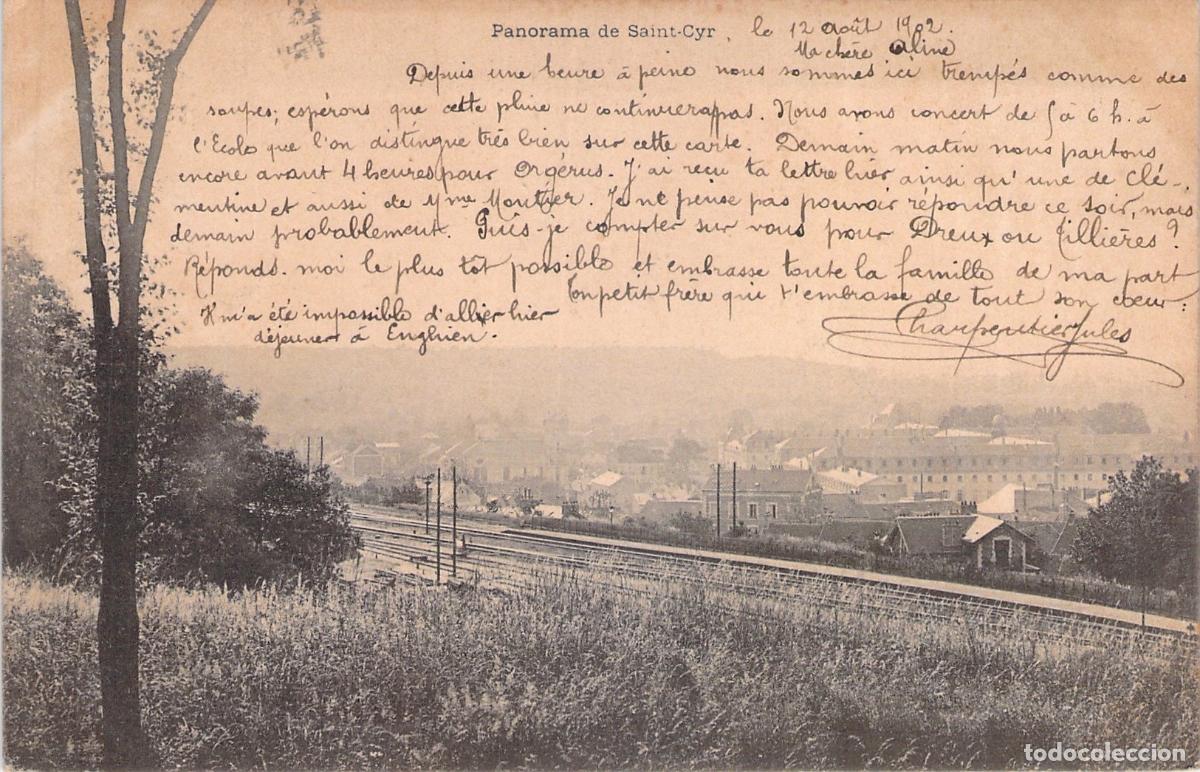 Panorama de Saint-Cyr, le 12 août 1902.
Ma chère Aline
Depuis une heure à peine nous sommes ici trempés comme des
soupes; espérons que cette pluie ne continuera pas. Nous avons concert de 5 à 6 h. à
l'Ecole que l'on distingue très bien sur cette carte. Demain matin nous partons
encore avant 4 heures pour Orgérus. J'ai reçu ta lettre hier ainsi qu'une de Clé-
mentine et aussi de Mme Moutier. Je ne pense pas pouvoir répondre ce soir, mais
demain probablement. Puis-je compter sur vous pour Dreux ou Tillières?
Réponds-moi le plus tôt possible et embrasse toute la famille de ma part
Ton petit frère qui t'embrasse de tout son cœur.
Il m'a été impossible d'aller hier
déjeuner à Enghien.
Charpentier Jules
todocoleccion